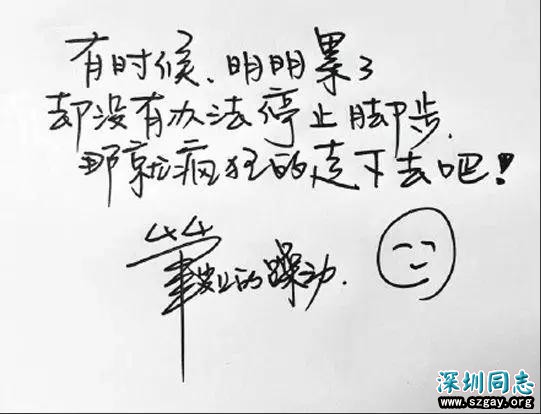 有时候、明明累了
却没有办法停止脚步.
那就疯狂的走下去吧!
毕业的躁动.
深圳同志
www.szgay.org